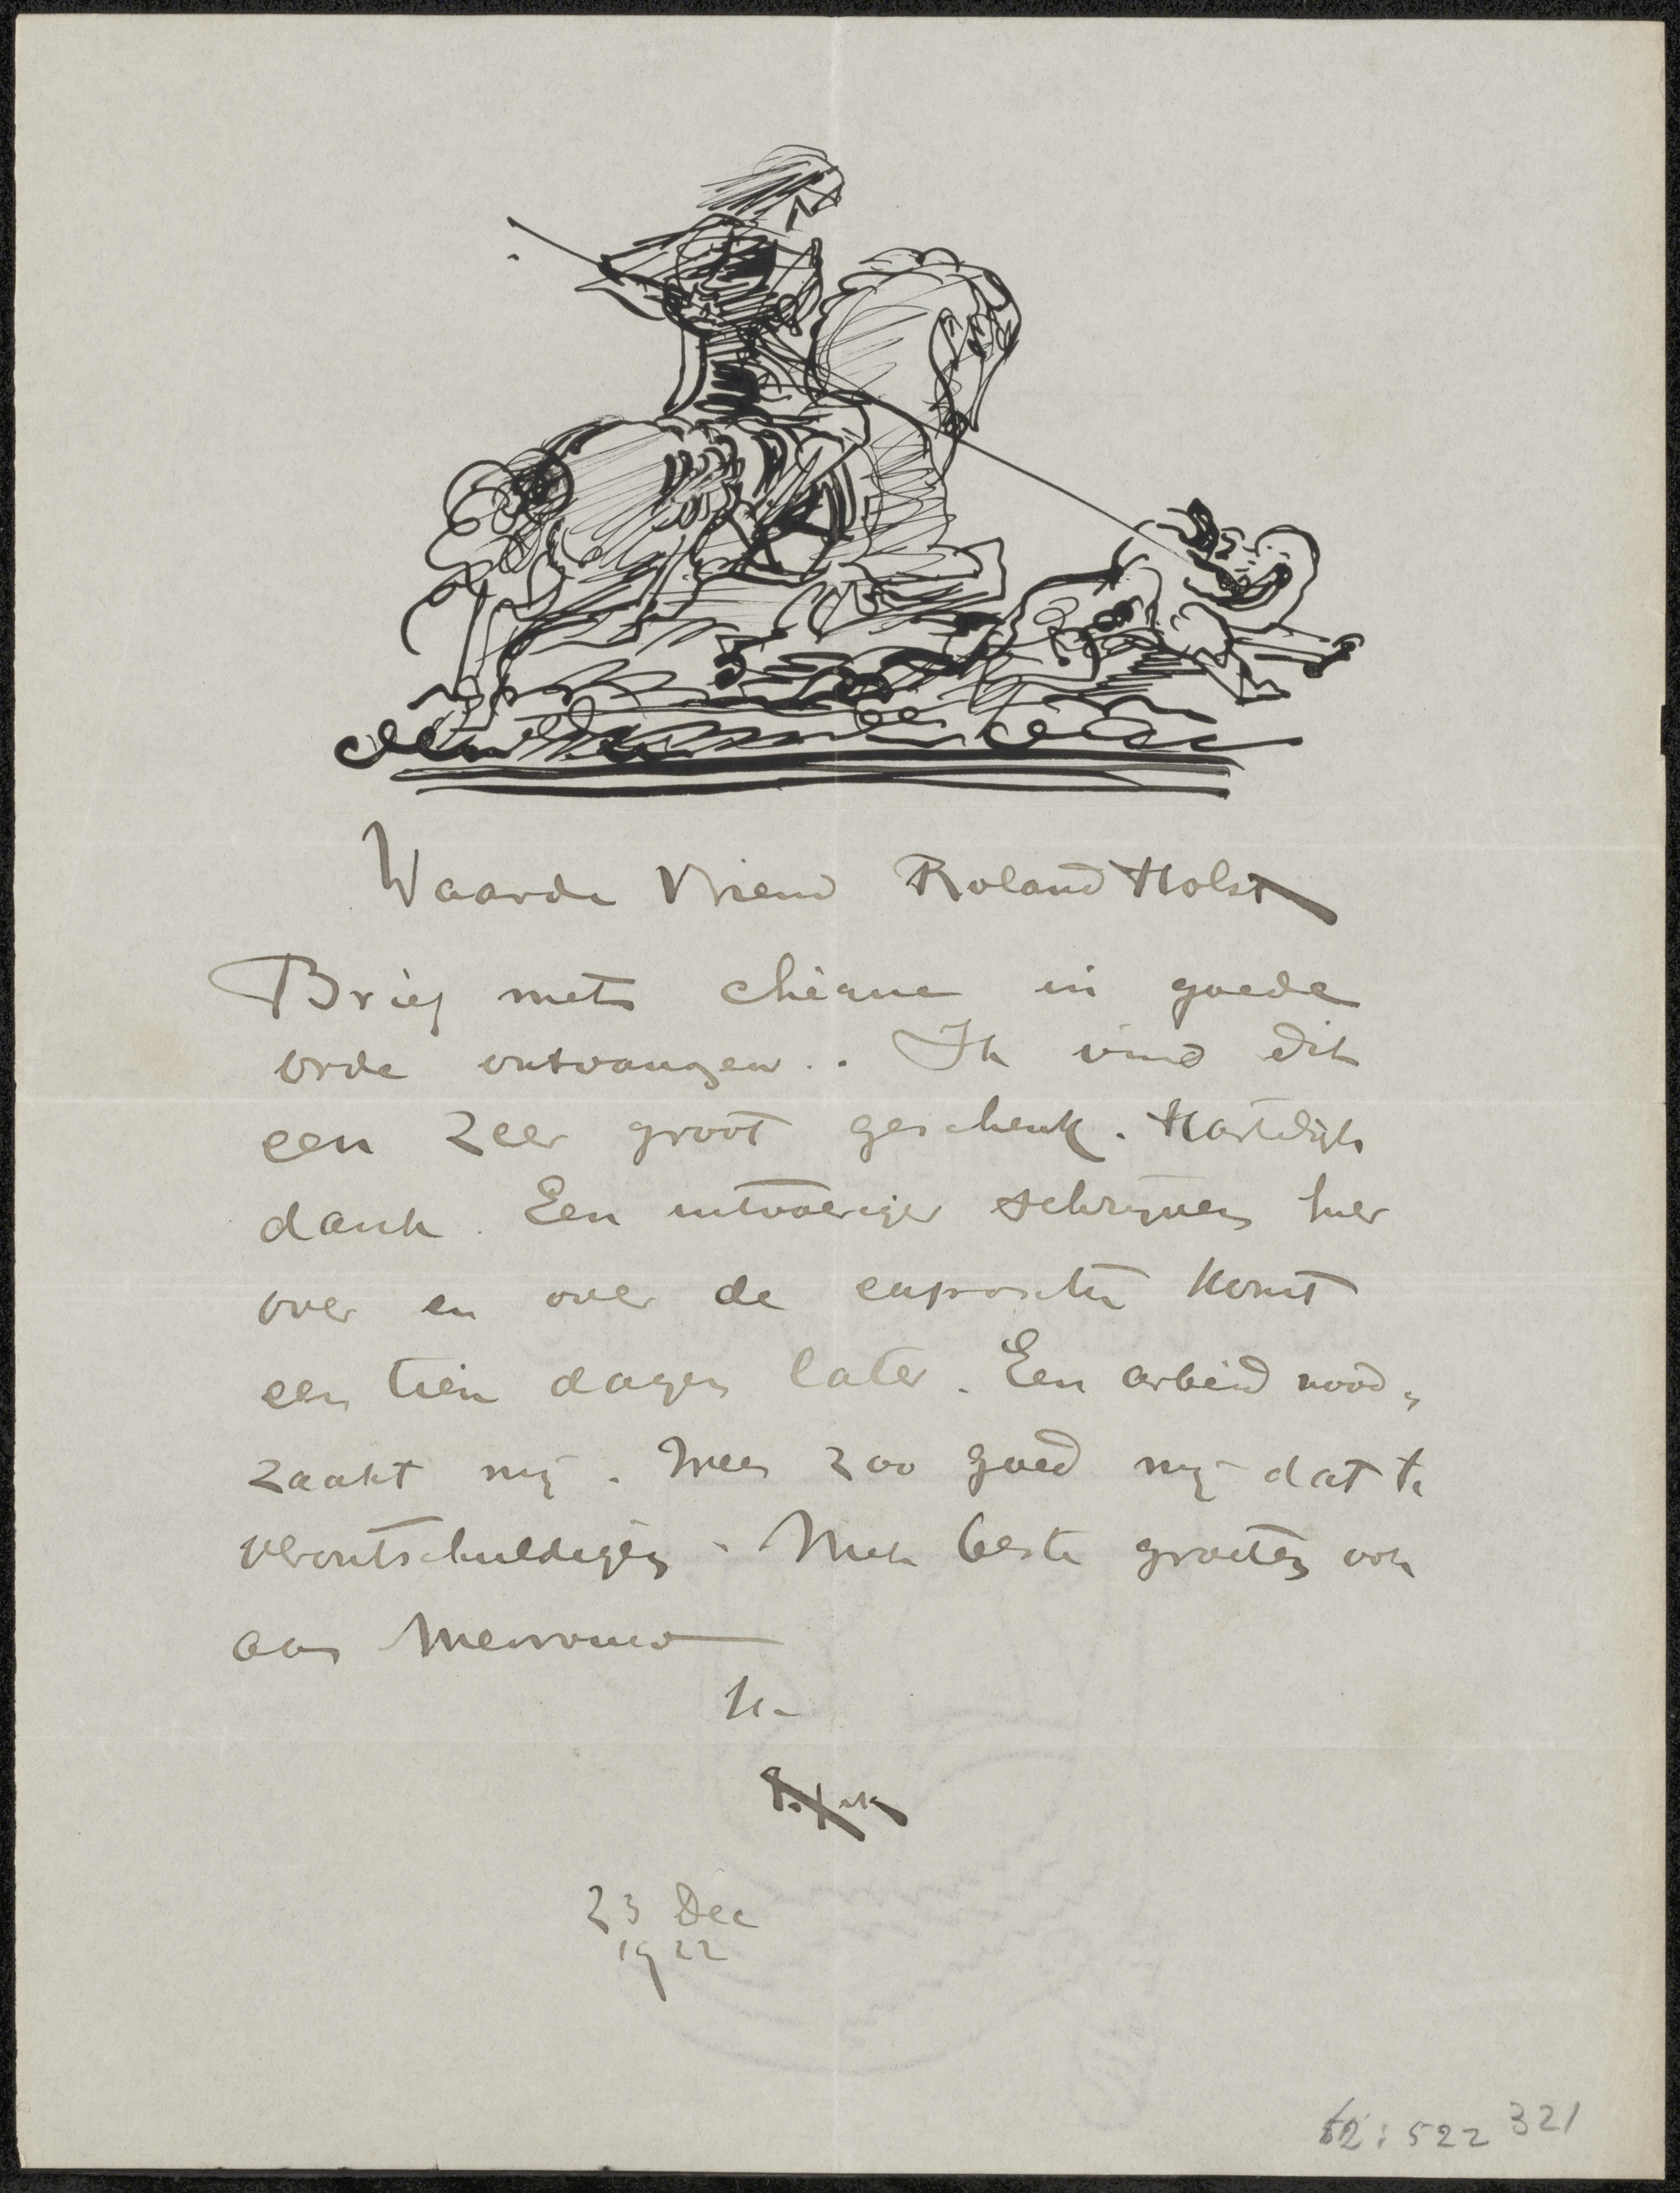 Waarde Vriend Roland Holst
Brief met chèque in goede
orde ontvangen. Ik vind dit
een zeer groot geschenk. Hartelijk
dank. Een uitvoeriger schrijven hier
over en over de expositie komt
een tien dagen later. Een arbeid nood„
zaakt mij. Wees zoo goed mij dat te
verontschuldigen. Met beste groeten ook
aan Mevrouw
Uw
23 Dec
1922
62:522 321